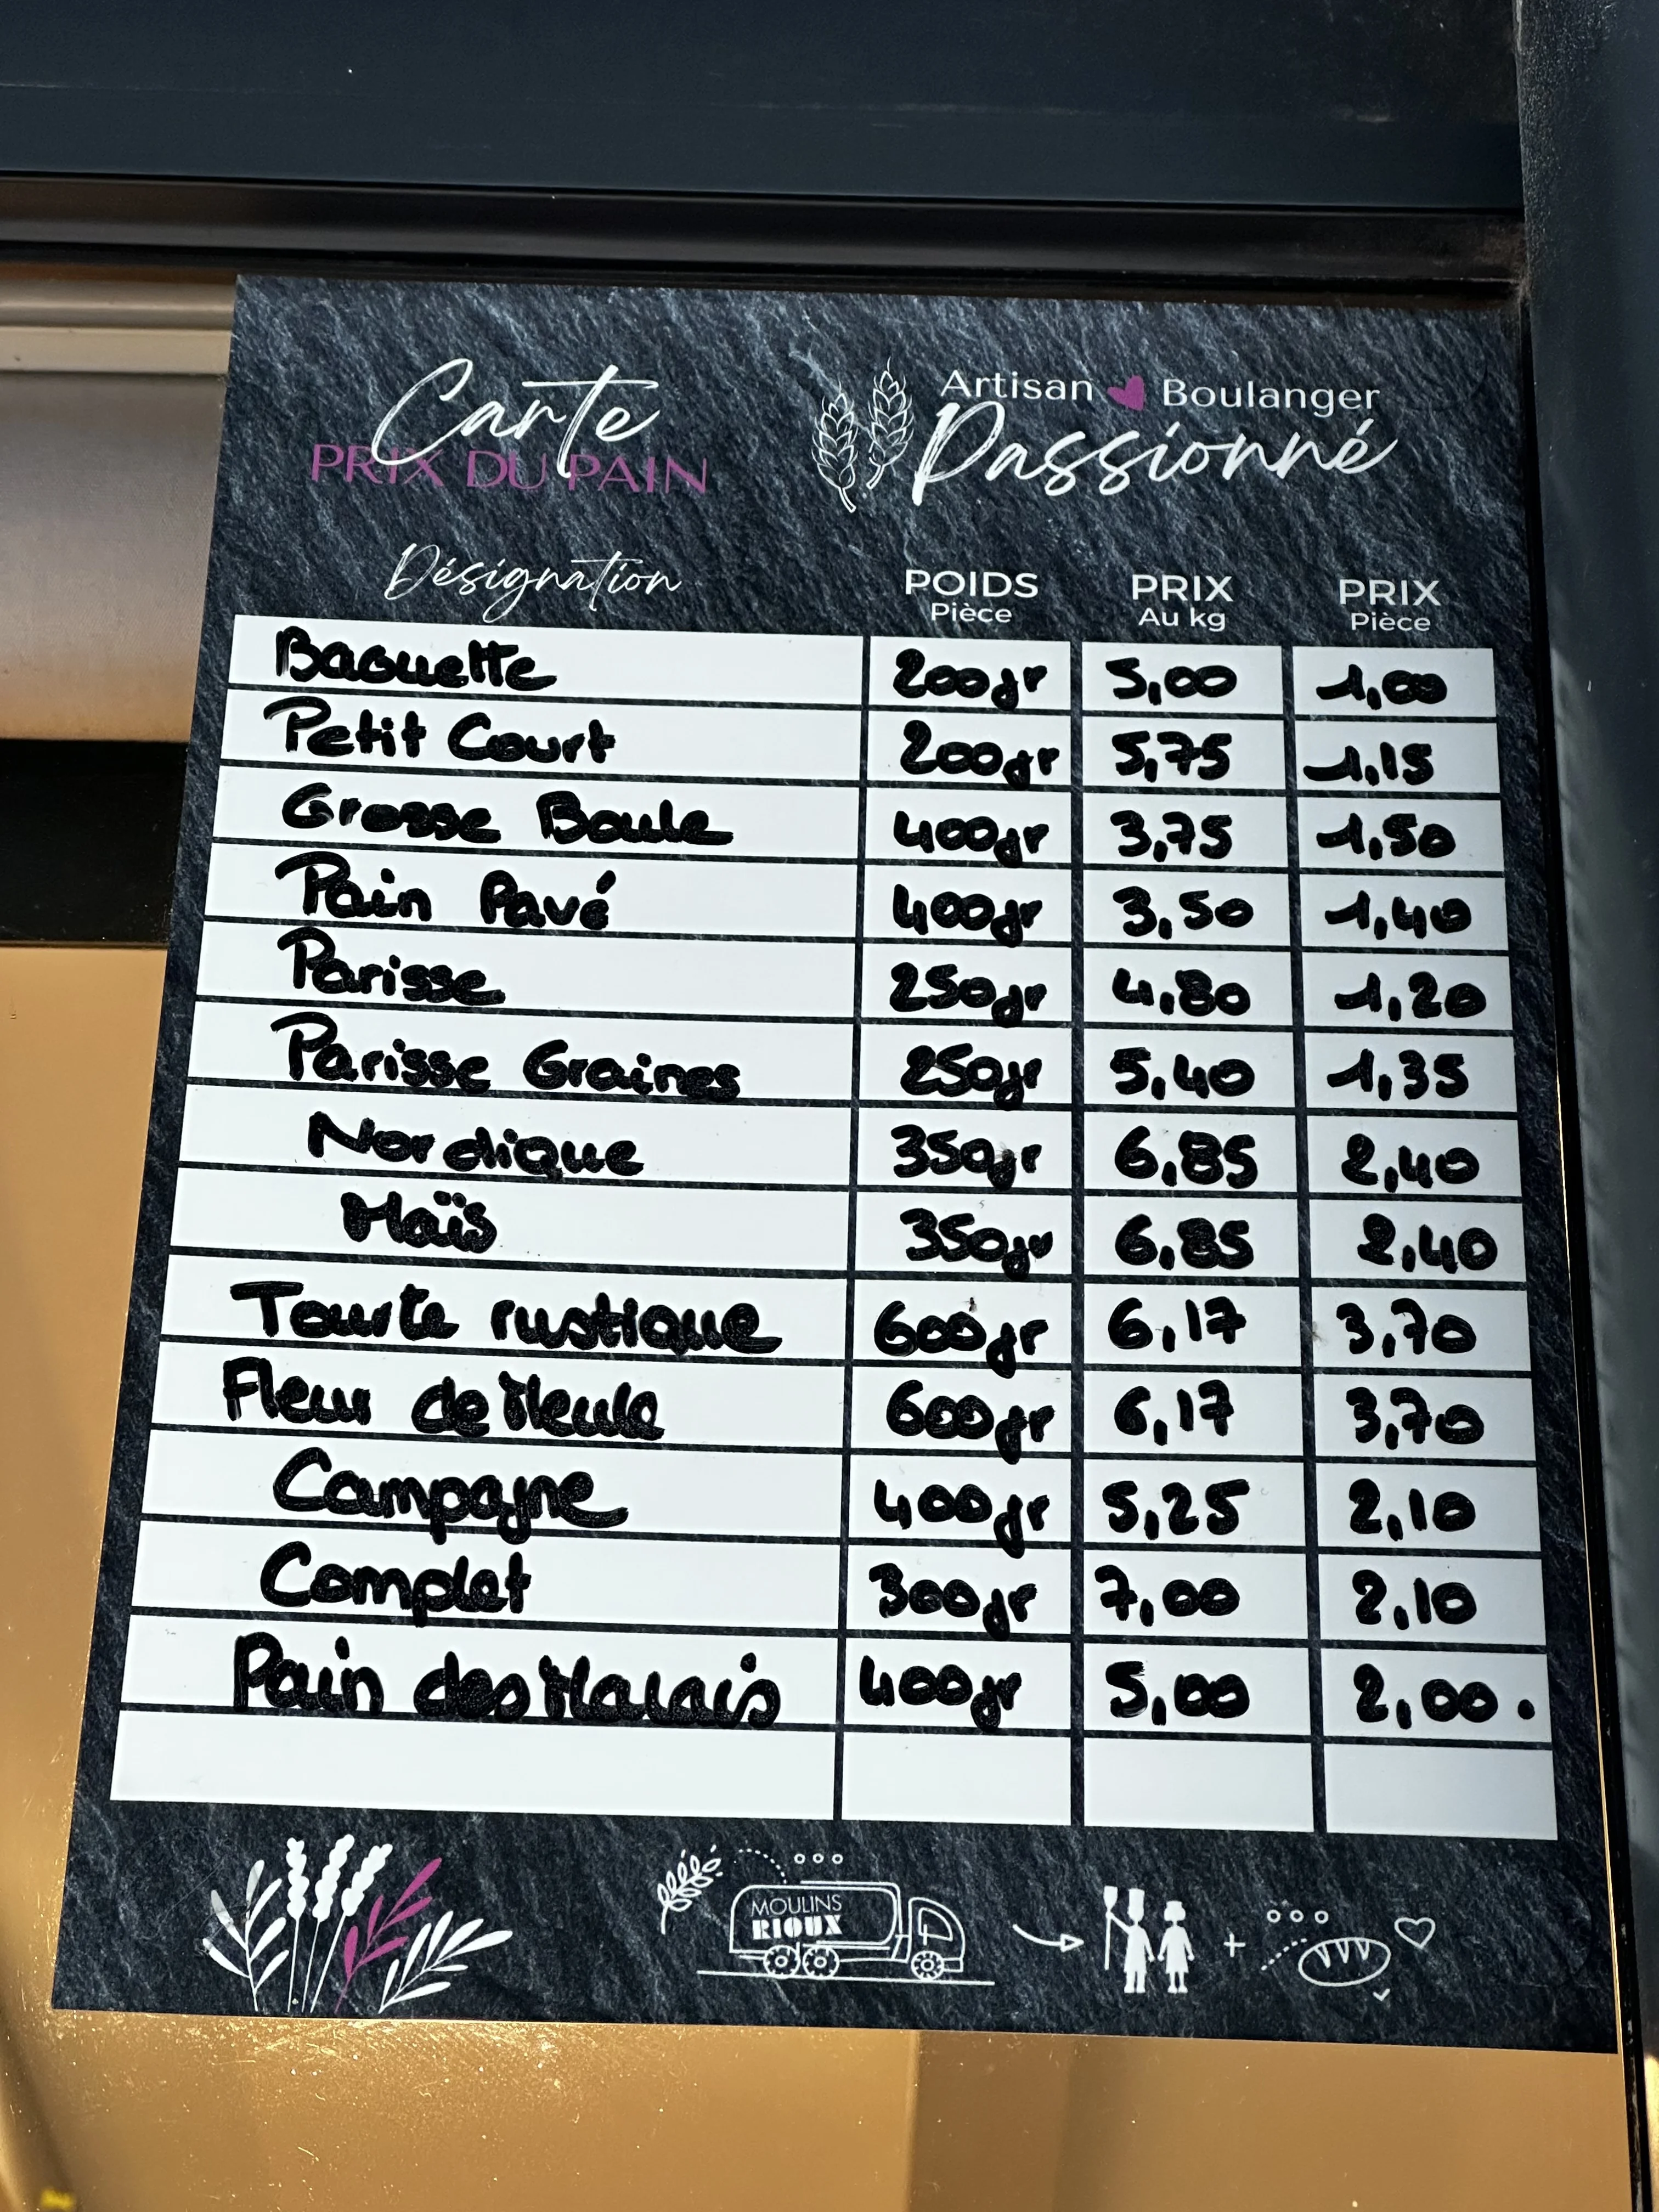 Carte
PRIX DU PAIN
Artisan Boulanger
Passionné
Désignation POIDS Pièce PRIX Au kg PRIX Pièce
Baguette 200gr 5,00 1,00
Petit Court 200gr 5,75 1,15
Grosse Boule 400gr 3,75 1,50
Pain Pavé 400gr 3,50 1,40
Parisse 250gr 4,80 1,20
Parisse Graines 250gr 5,40 1,35
Nordique 350gr 6,85 2,40
Maïs 350gr 6,85 2,40
Tourte rustique 600gr 6,17 3,70
Fleur de Meule 600gr 6,17 3,70
Campagne 400gr 5,25 2,10
Complet 300gr 7,00 2,10
Pain des Marais 400gr 5,00 2,00.
MOULINS
RIOUX